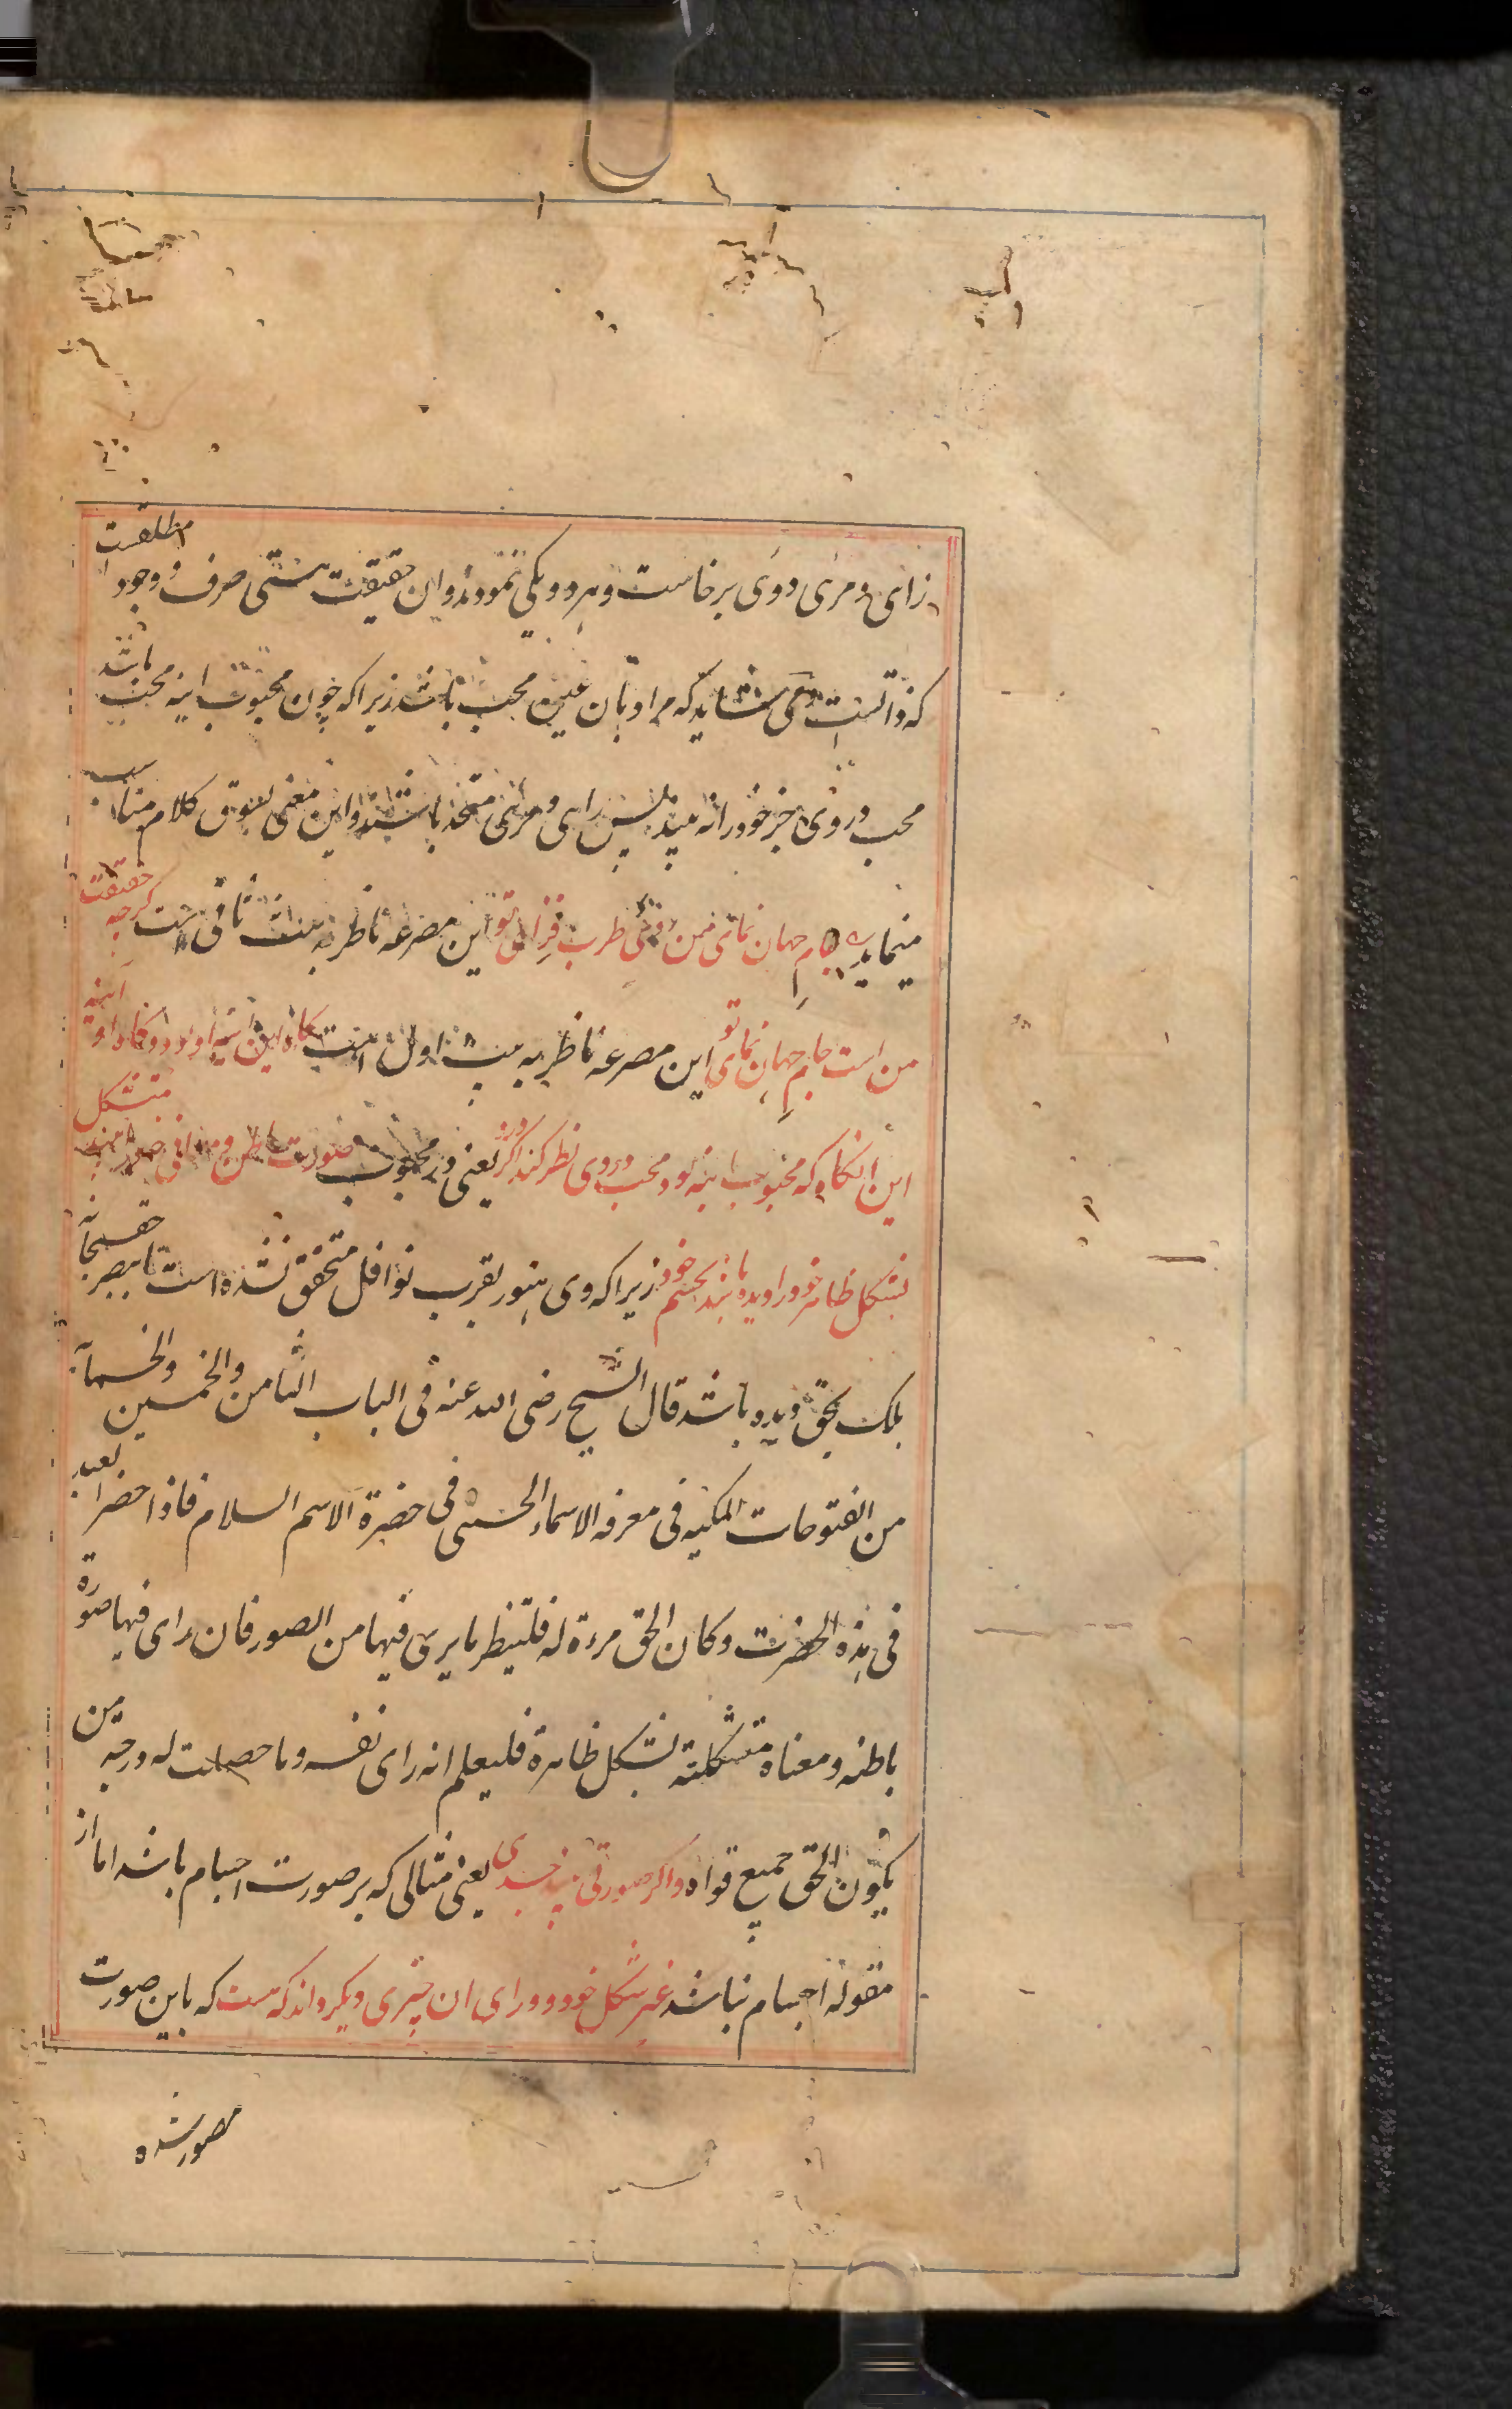 زرائی و مرئی دوئی برخاست و هر دو یکی نمودند و ان حقیقت هستی صرف و وجود مطلقست
که ذاتست و می شاید که مراد بان عین محب باشد زیرا که چون محبوب اینه محب باشد
محب در وی جز خود را نه بیند پس رائی و مرئی متحد باشند و این معنی بسوق کلام مناسب
مینماید جام جهان نمای من روی طرب فزای تو این مصرعه ناظر به بیت ثانی است کرچه حقیقت
من است جام جهان نمای تو این مصرعه ناظر به بیت اول است کاه این اینه او بود و کاه او آینه
این انکاه که محبوب اینه بود محب در وی نظر کند اکر درو یعنی در محبوب صورت باطن و معانی خود بیند متشکل
بشکل ظاهر خود را دیده باشد بچشم خود زیرا که وی هنوز بقرب نوافل متحقق نشده است تا ببصر حق سبحانه
بلک بحق دیده باشد قال الشیخ رضی الله عنه فی الباب الثامن والخمسین والخمسمایه
من الفتوحات المکیه فی معرفه الاسماء الحسنی فی حضرة الاسم السلام فاذا حضر العبد
فی هذه الحضرت و کان الحق مرءة له فلینظر ما یری فیها من الصور فان رای فیها صورة
باطنه و معناه متشکلته بشکل ظاهره فلیعلم انه رای نفسه و ما حصلت له درجة من
یکون الحق جمیع قواه و اکر صورتی بیند جسدی یعنی مثالی که بر صورت اجسام باشد اما از
مقوله اجسام نباشد غیر شکل خود و ورای ان چیزی دیکر داند که هست که باین صورت
مصور شده